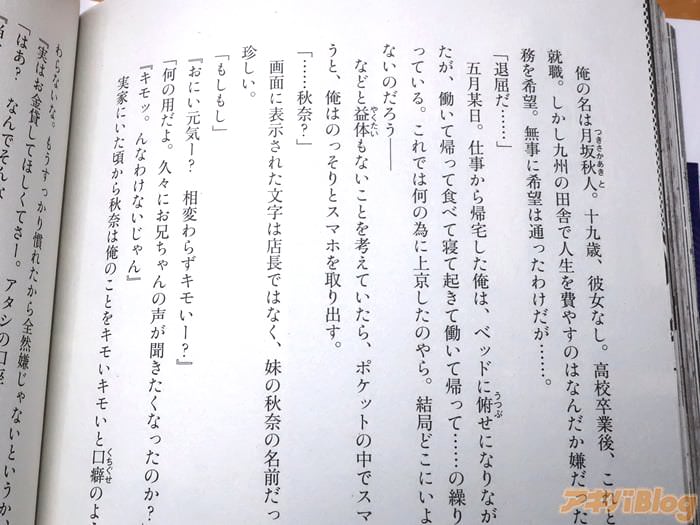 俺の名は月坂秋人。十九歳、彼女なし。高校卒業後、これと
就職。しかし九州の田舎で人生を費やすのはなんだか嫌だった
務を希望。無事に希望は通ったわけだが……。
「退屈だ……」
五月某日。仕事から帰宅した俺は、ベッドに俯せになりなが
たが、働いて帰って食べて寝て起きて働いて帰って……の繰り
っている。これでは何の為に上京したのやら。結局どこにいよ
ないのだろう――
などと益体もないことを考えていたら、ポケットの中でスマ
うと、俺はのっそりとスマホを取り出す。
「……秋奈？」
画面に表示された文字は店長ではなく、妹の秋奈の名前だっ
珍しい。
「もしもし」
『おにい元気ー？　相変わらずキモいー？』
「何の用だよ。久々にお兄ちゃんの声が聞きたくなったのか？」
『キモッ。んなわけないじゃん』
実家にいた頃から秋奈は俺のことをキモいキモいと口癖のよ
わらないな。もうすっかり慣れたから全然嫌じゃないというか
『実はお金貸してほしくてさー。アタシの口座
「はあ？　なんでそんな
アキバBlog